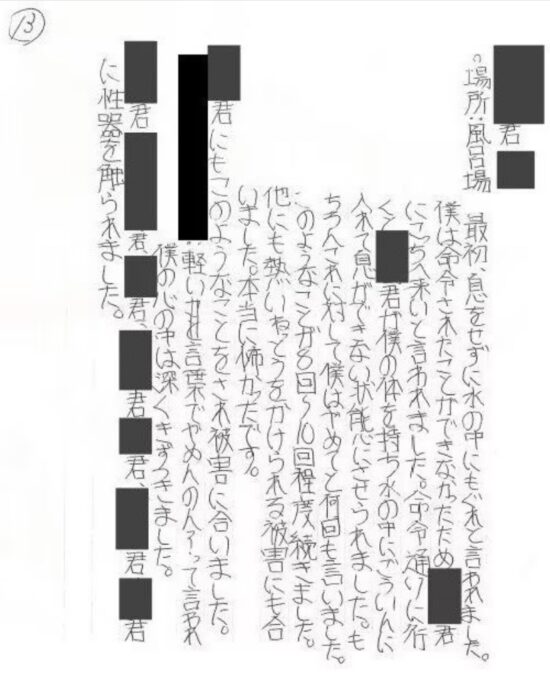 ⑬
君
。場所:風呂場
最初、息をせずに水の中にもぐれと言われました。
僕は命令されたことができなかったため 君
にこっちへ来いと言われました。命令通りに行
くと 君が僕の体を持ち水の中にごういんに
入れて息ができない状態にさせられました。も
ちろんそれに対して僕はやめてと何回も言いました。
このようなことが8回~10回程度続きました。
他にも熱いねっとうをかけられる被害にも合
いました。本当に怖かったです。
君にもこのようなことをされ被害に合いました。
:軽い 言葉でやめんのん?って言われ
僕の心の中は深くきずつきました。
君 君、 君、 君 君、 君 君
に性器を触られました。